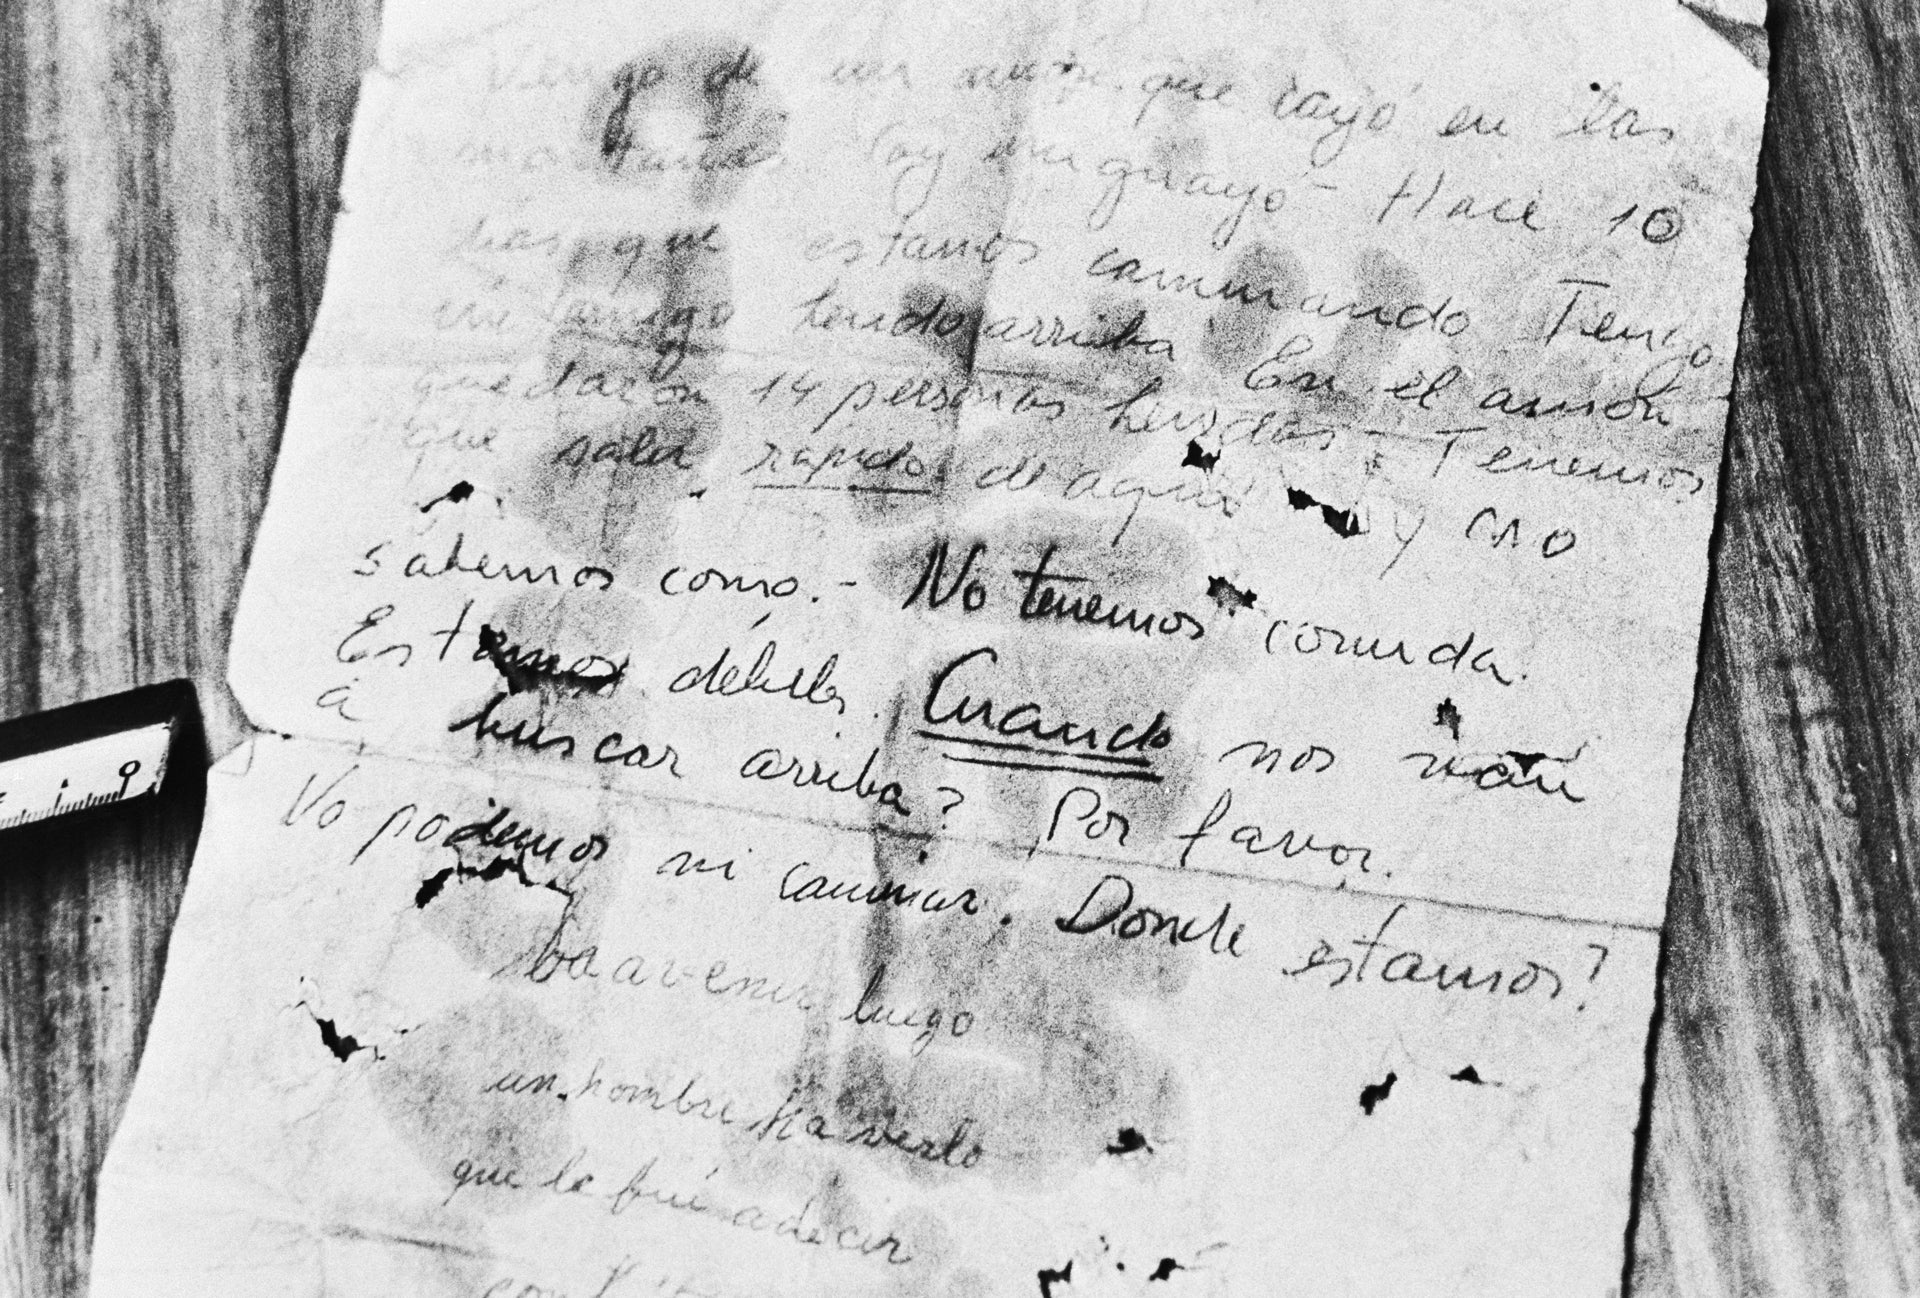 Vengo de un avión que cayó en las
montañas. Soy uruguayo - Hace 10
días que estamos caminando Tengo
un amigo herido arriba En el avión
quedaron 14 personas heridas - Tenemos
que salir rápido de aquí y no
sabemos como. - No tenemos comida.
Estamos débiles. Cuando nos van
a buscar arriba? Por favor.
No podemos ni caminar. Donde estamos?
ba avenir luego
un hombre ha verlo
que le fué a decir
9